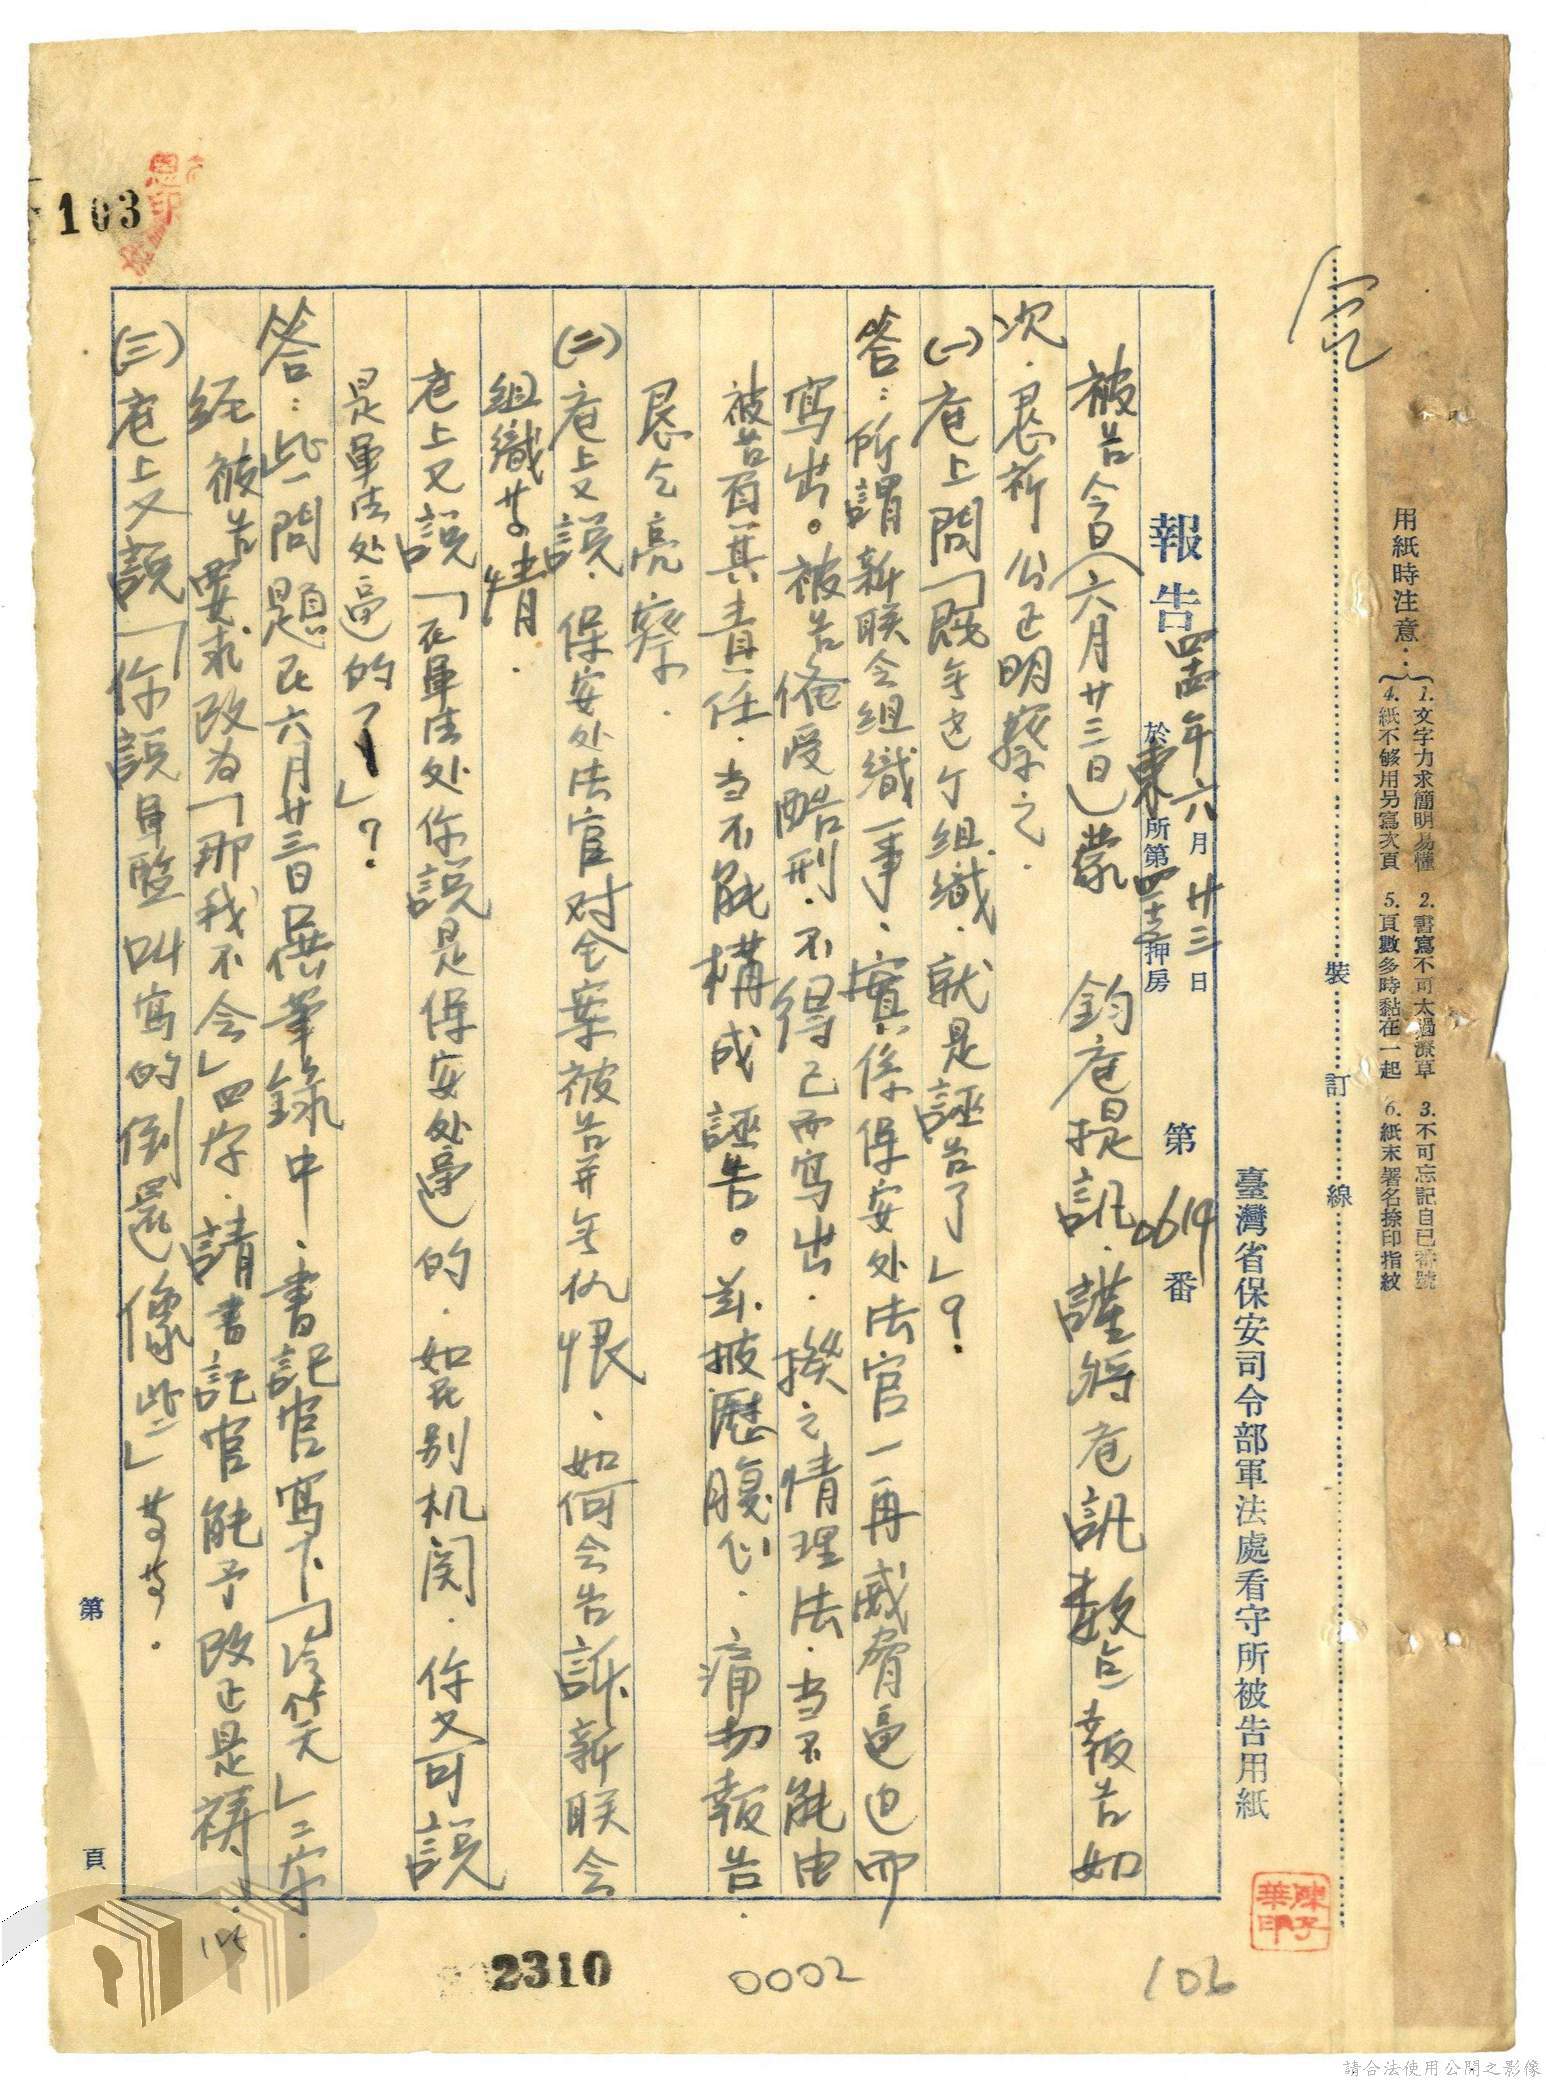 用紙時注意：
1. 文字力求簡明易懂 2. 書寫不可太過潦草 3. 不可忘記自己番號
4. 紙不够用另寫次頁 5. 頁數多時黏在一起 6. 紙末署名捺印指紋
裝 訂 線
臺灣省保安司令部軍法處看守所被告用紙
報告 四四年六月廿三日 第 0619 番
於東所第四 押房
被告今日（六月廿三日）蒙 鈞庭提訊．謹將庭訊数点報告如
次．恳祈 公正明察之．
(一)庭上問「既无这个組織．就是誣告了」？
答：所謂新联会組織一事、實係保安处法官一再威脅逼迫而
寫出。被告俻受酷刑．不得已而寫出．揆之情理法．当不能由
被告負其責任．当不能構成誣告。玆披瀝腹心．痛切報告．
恳乞亮察．
(二)庭上又説．保安处法官对仝案被告并无仇恨、如何会告訴新联会
組織其情．
庭上又説「在軍法处你説是保安处逼的．如在别机関．你又可説
是軍法处逼的了」？
答：此一問題在六月廿三日供筆錄中、書記官寫下「冷笑」二字．
经被告要求改為「那我不会」四字．請書記官能予改正是禱．
(三)庭上又説「你説軍監叫寫的倒還像些」等等．
第 頁
103
2310
0002
106
陳子華印
請合法使用公開之影像